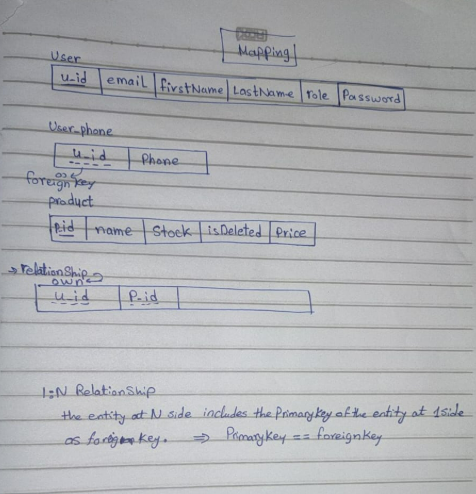 Mapping
User
u-id email firstName LastName role Password
User-phone
u-id Phone
as
foreign key
product
p.id name Stock isDeleted Price
→ relationShip
own
u-id P-id
1:N RelationShip
the entity at N side includes the Primary key of the entity at 1 side
as foriegn key. ⇒ Primary key == foreign key